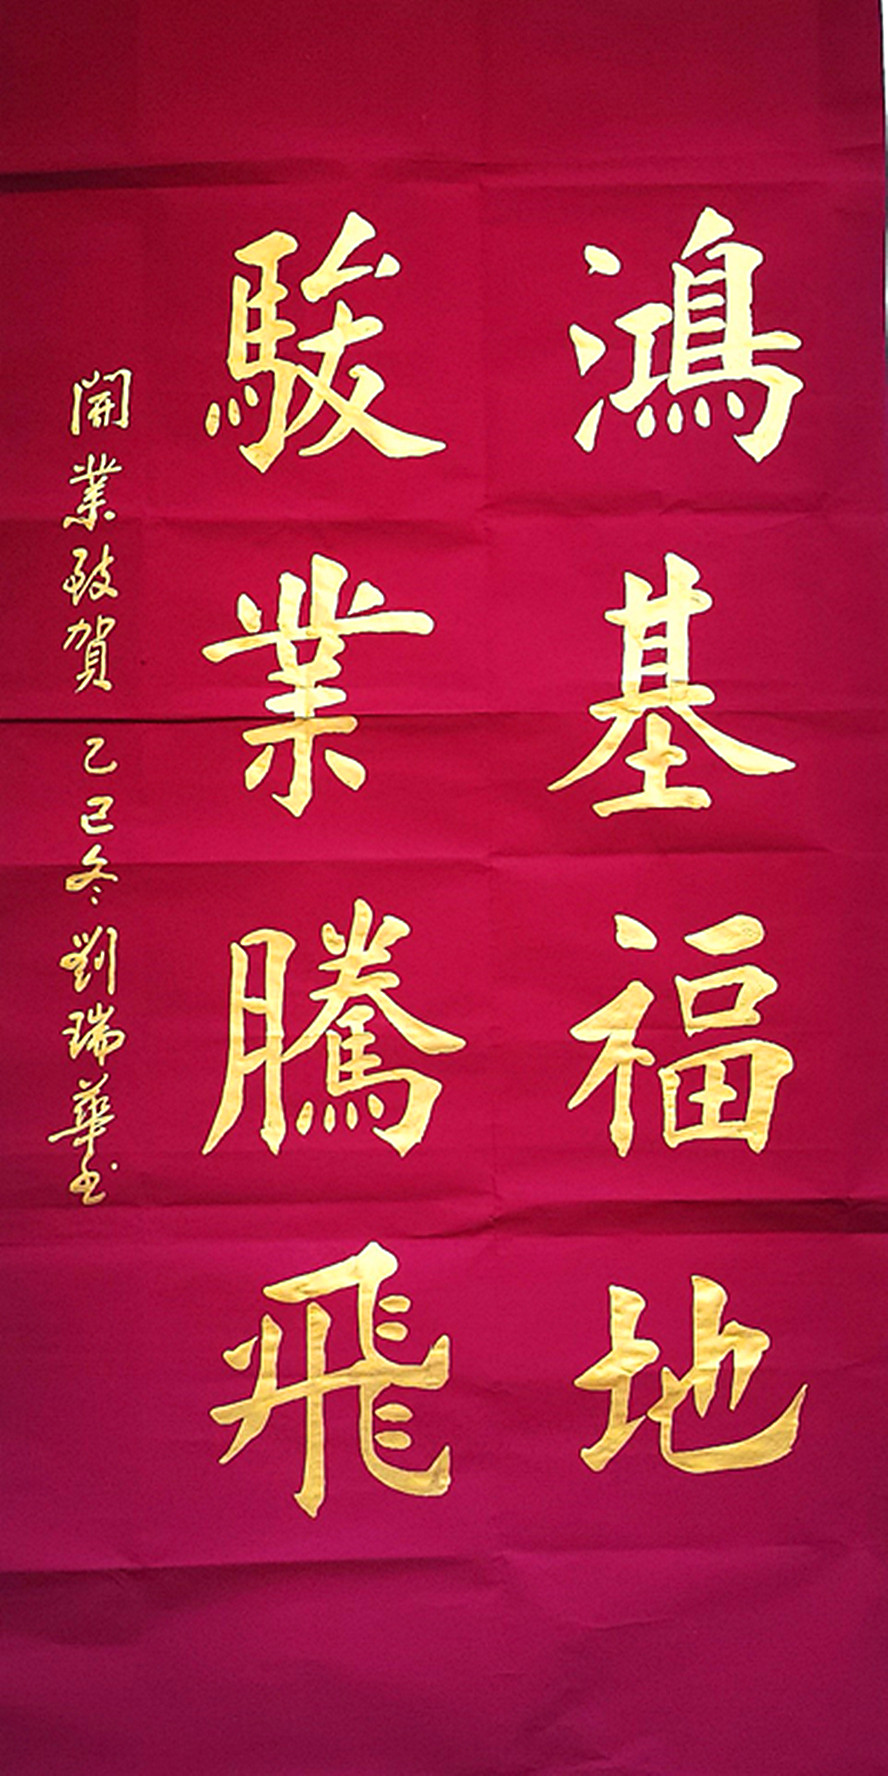 鴻基福地
駿業騰飛
開業致賀 乙巳冬 劉瑞華書